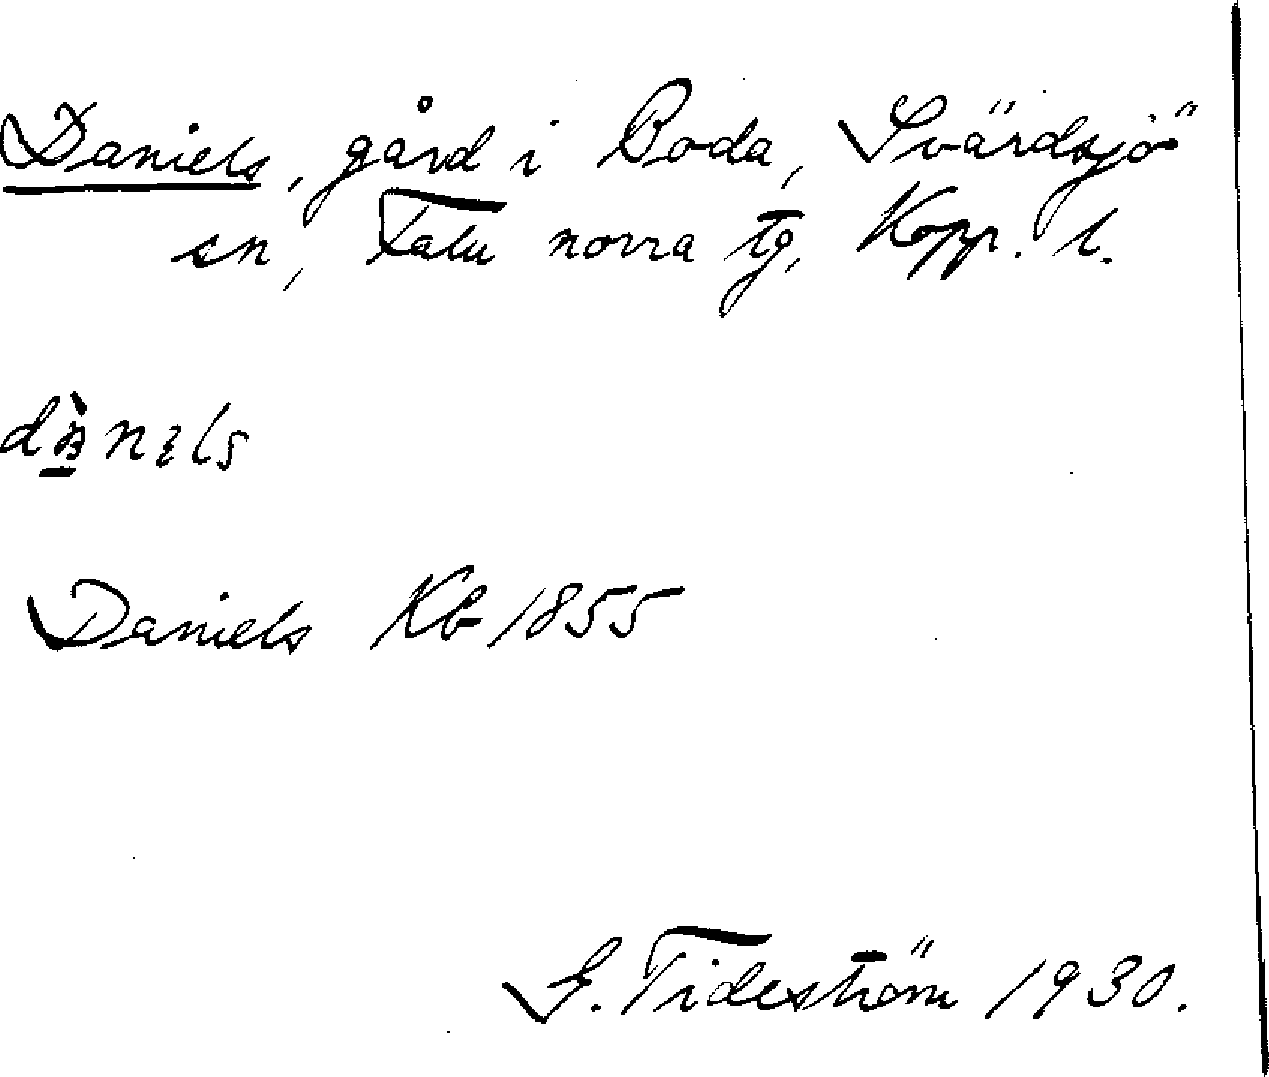 Daniels, gård i Boda, Svärdsjö
sn, Falu norra tg, Kopp. l.
Daniels Kb 1855
G. Tideström 1930.